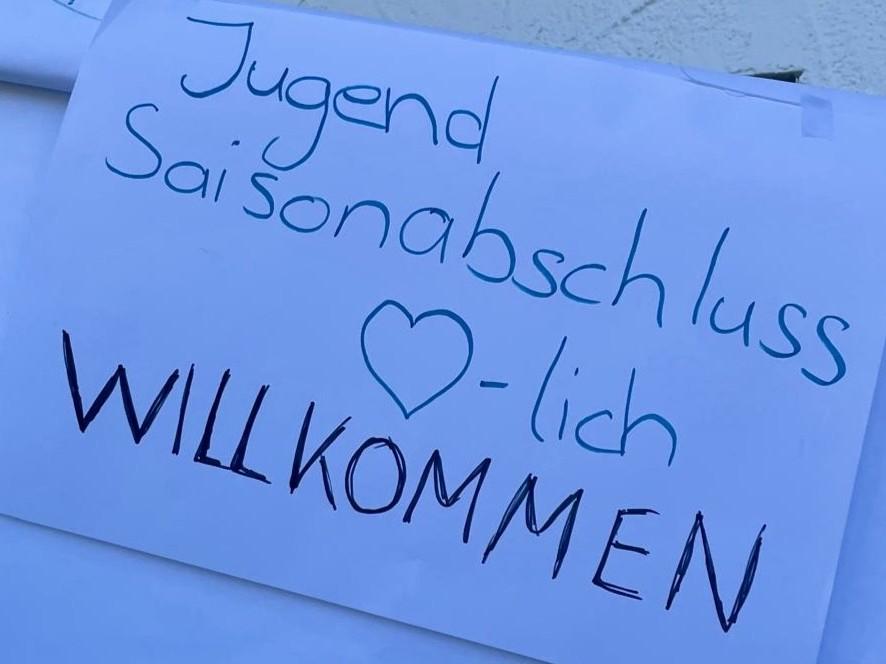 Jugend
Saisonabschluss
♡-lich
WILLKOMMEN